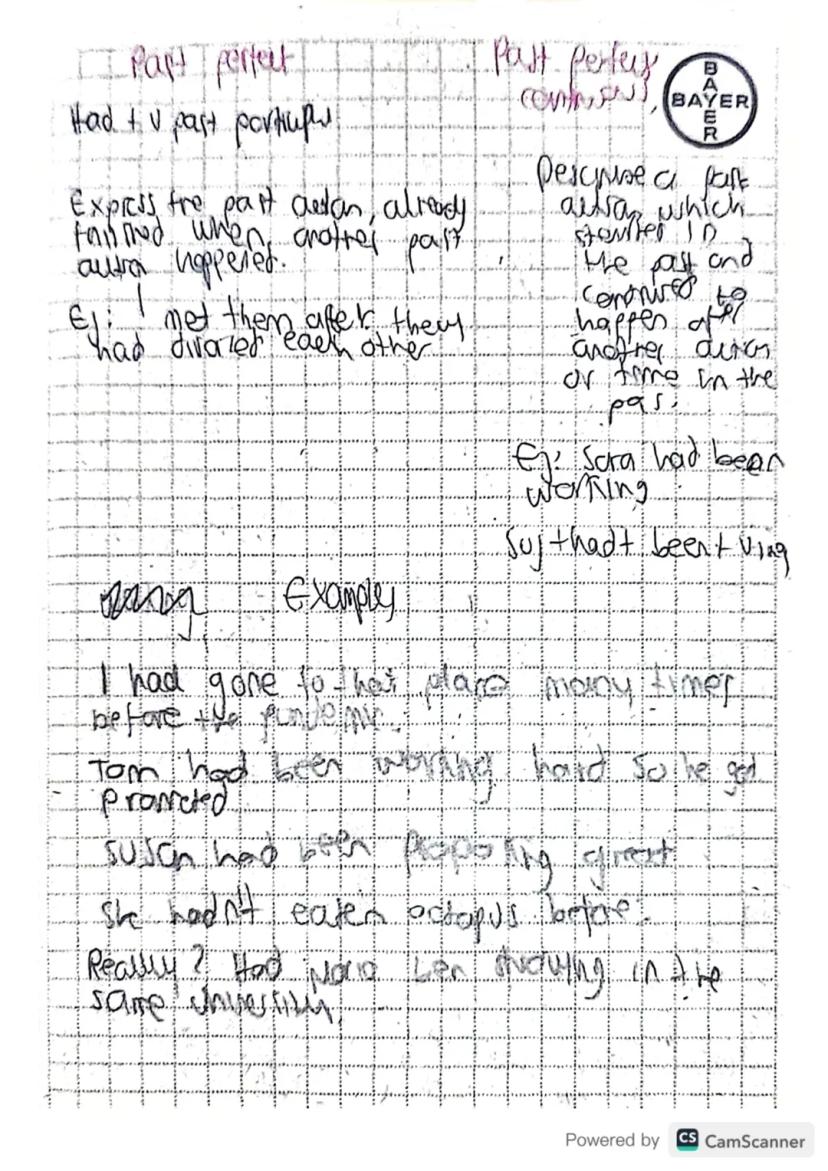 Past perfect
Had + v past participle
Express the past action, already
finished when another past
action happened.
Ej: I met them after they
had divorced each other
Past perfect
continuous,
BAYER
BAYER
Describe a past
action which
started in
the past and
continued to
happen after
another action
or time in the
pas.
Ej: Sara had been
working
Suj + had + been + Ving
Examples
I had gone to that place many times
before the pandemic.
Tom had been working hard so he got
promoted
Susan had been great
She hadn't eaten octopus before.
Really? Had Maria ben studying in the
same university,
Powered by CS CamScanner